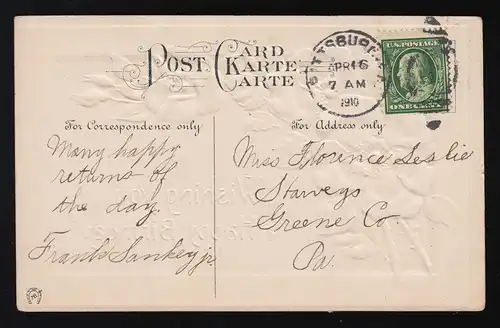 POST CARD
KARTE
CARTE
PITTSBURG
APR 16
7 AM
1910
U.S. POSTAGE
ONE CENT
For Correspondence only
For Address only
Many happy
returns of
the day.
Frank Sankey jr.
Miss Florence Leslie
Starweys
Greene Co.
Pa.